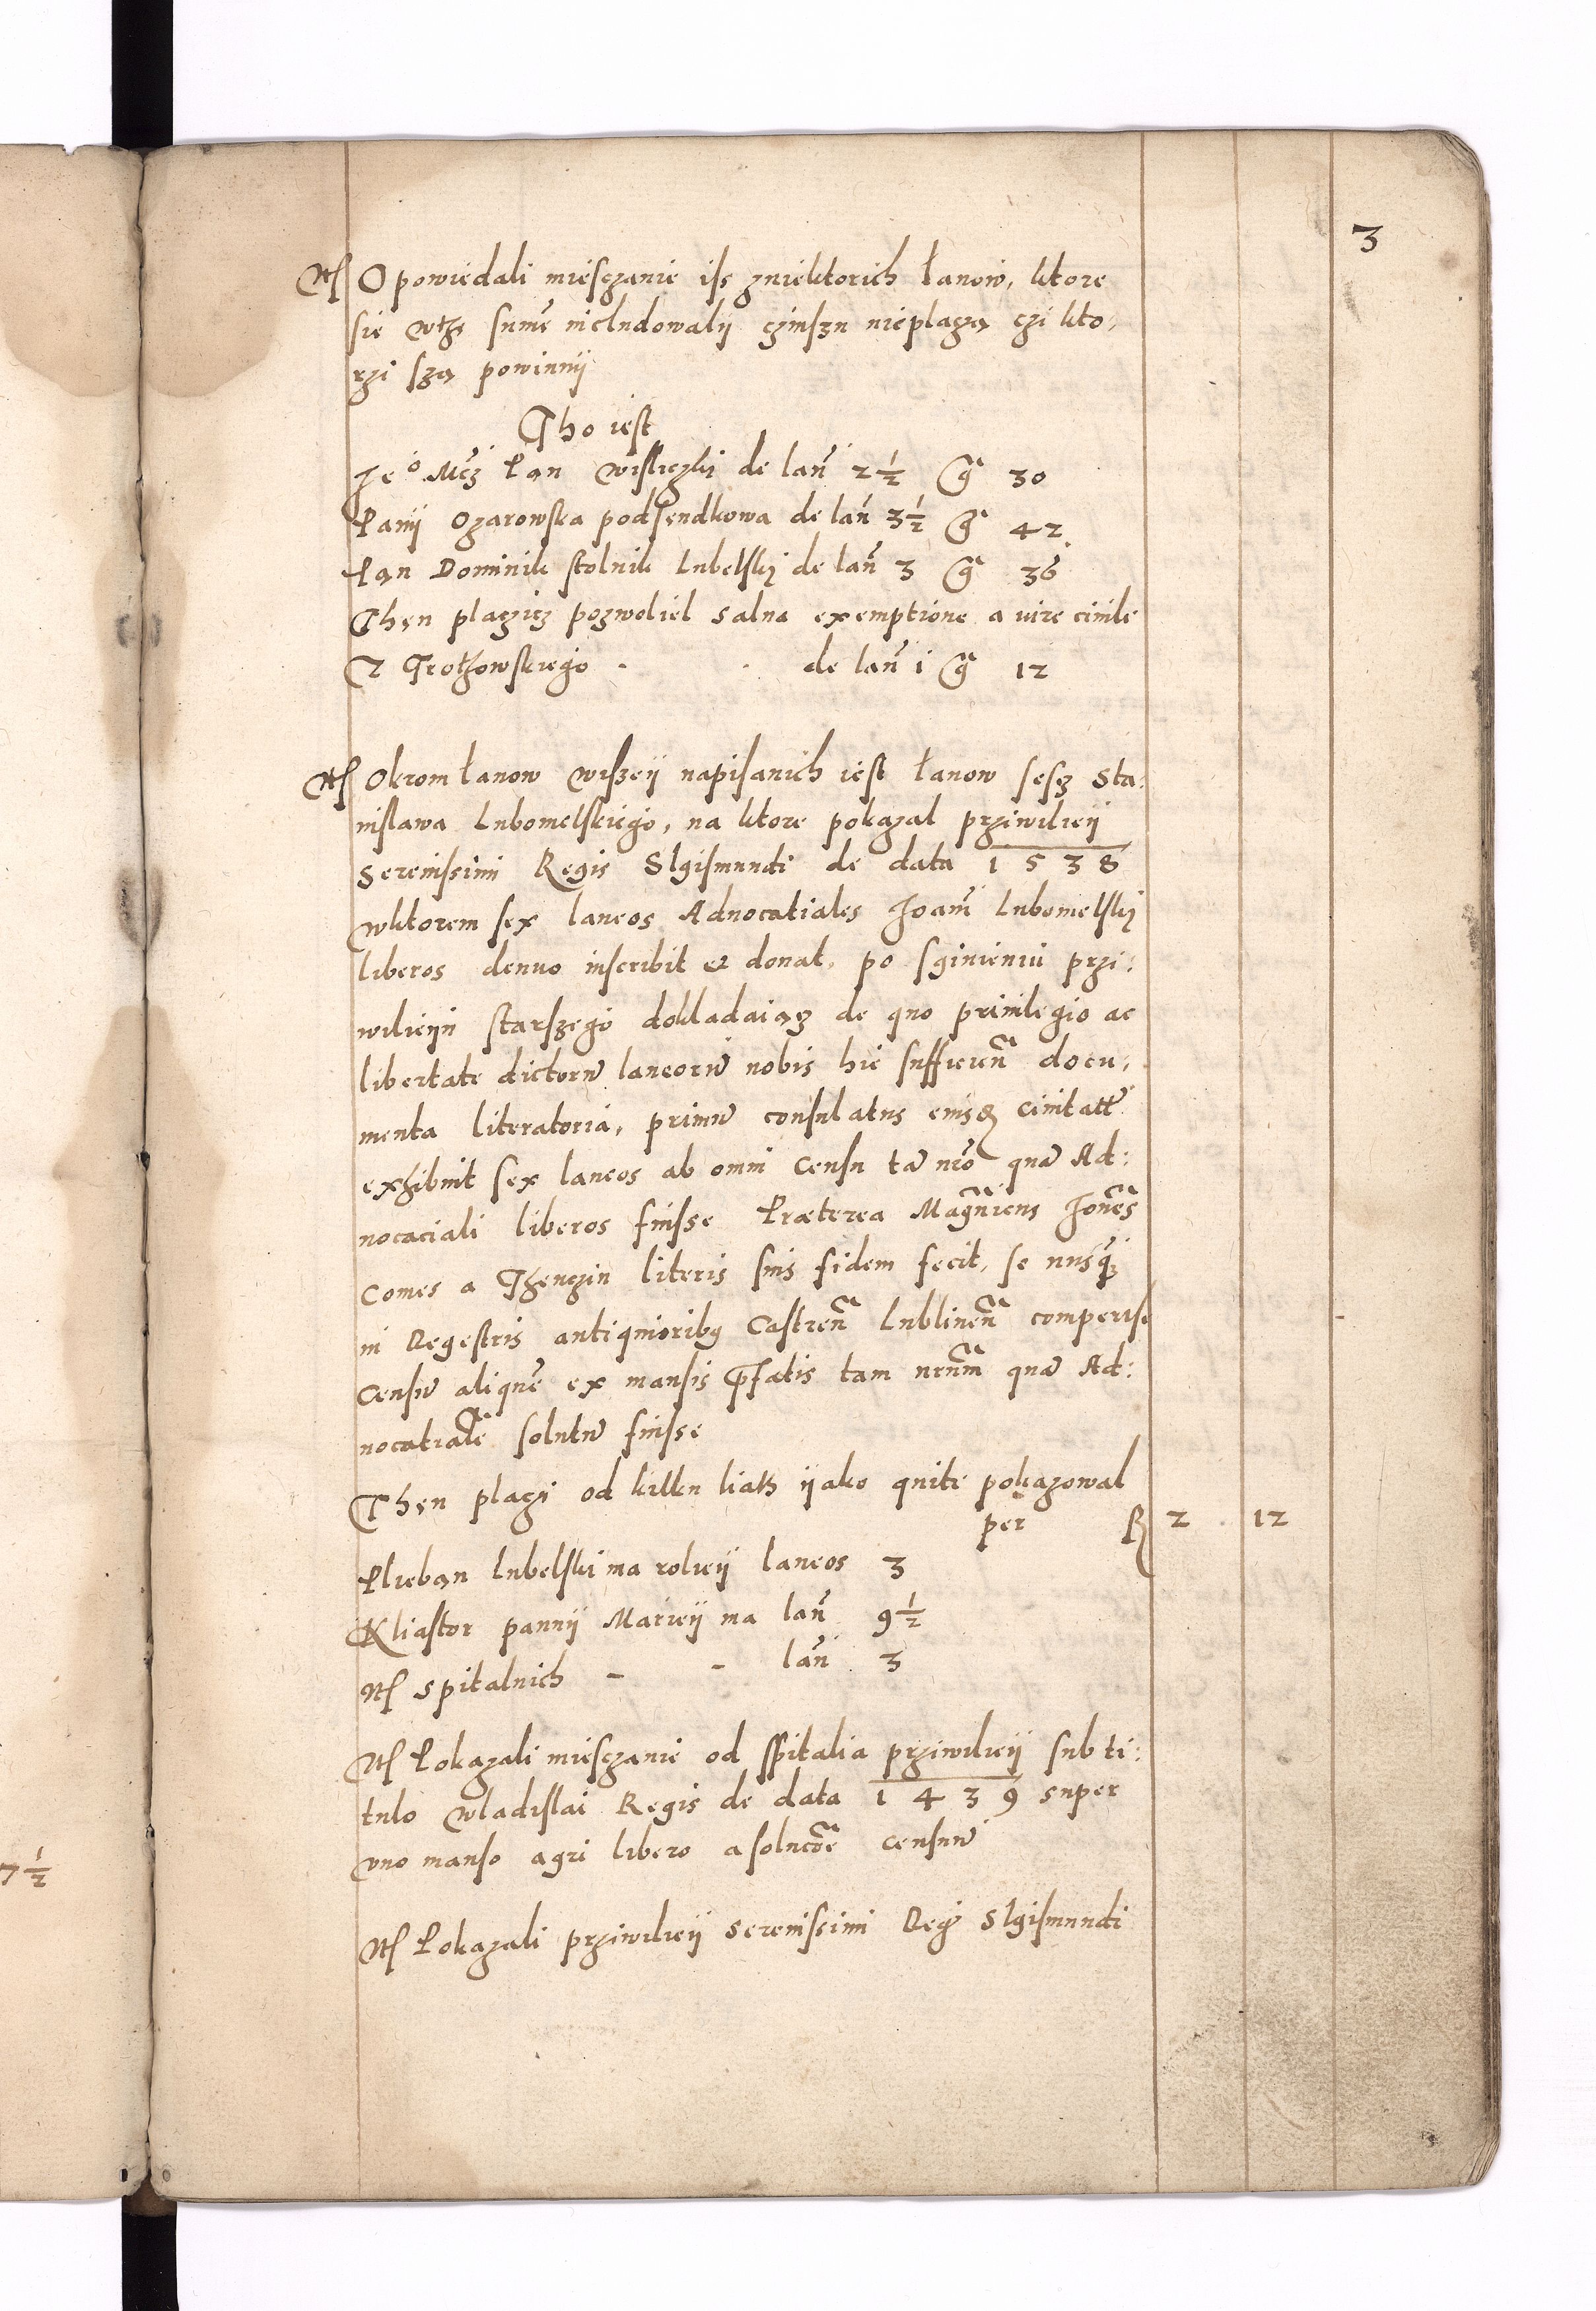 3
Itē Opowiedali miesczanie iss zniektorich łanow, ktore
sie wthę sumę includowalij czinszu nieplaczą czi kto,
rzi szą powinnij
Tho iest
Jeo Mcz Pan wisliczki de lan̄ 2½ gr̄ 30
Panij Ozarowska podsendkowa de lan̄ 3½ gr̄ 42
Pan Dominik stolnik Lubelski de lan̄ 3 gr̄ 36
Then placzicz pozwoliel salua exemptione a iure ciuile
Z Trothowskiego - - de lan̄ i gr̄ 12
Itē Okrom łanow wiszeij napisanich iest łanow sesz Sta:
nislawa Lubomelskiego, na ktore pokazal prziwilieij
Serenissimi Regis Sigismundi de data 1538
wktorem sex laneos Aduocatiales Joani Lubomelski
liberos denuo inscribit & donat, po sginieniu przi:
wilieiju starszego dokladaiącz de quo priuilegio ac
libertate dictorū laneorū nobis hic sufficien̄ docu,
menta literatoria, primū consulatus eiusq ciuitatī
exhibuit sex laneos ab omni censu tā nro quā Ad:
uocaciali liberos fuisse Præterea Magnicus Jonēs
Comes a Thenczin literis suis fidem fecit, se nusq̄
in Regestris antiquioribꝫ Castren̄ Lublinen̄ comperise
Censū aliquē ex mansis p̄fatis tam nrum̄ quā Ad:
uocatialē solutū fuisse
Then placzi od kilku liath ijako quite pokazowal
per R 2 12
Plieban Lubelski ma roliej laneos 3
Kliastor pannij Marieij ma lan̄ 9½
Itē spitalnich - - lan̄ 3
Itē Pokazali miesczanie od Spitalia prziwilieij sub ti:
tulo wladislai Regis de data 1439 super
vno manso agri libero a solucōe censuū
Itē Pokazali prziwilieij serenissimi Regī Sigismundi
7½